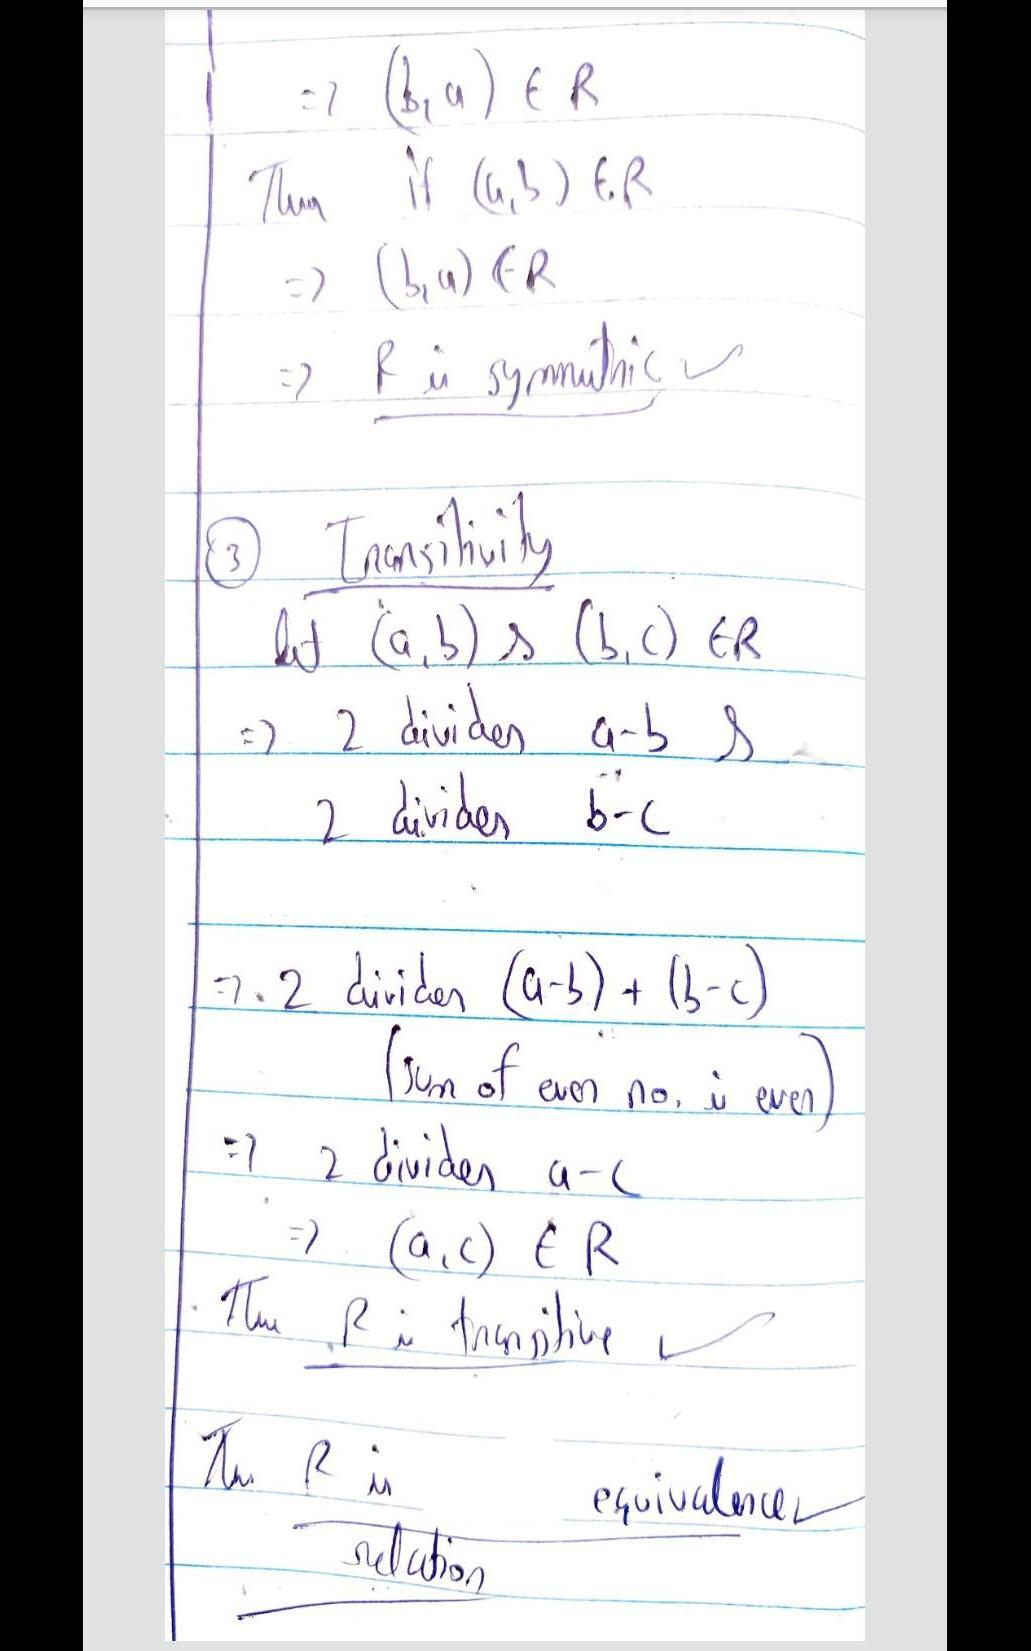 => (b, a) ∈ R
Thus if (a,b) ∈ R
=> (b, a) ∈ R
=> R is symmetric ✓
③ Transitivity
let (a, b) & (b, c) ∈ R
=> 2 divides a-b &
2 divides b-c
=> 2 divides (a-b) + (b-c)
(sum of even no. is even)
=> 2 divides a-c
=> (a, c) ∈ R
Thus R is transitive ✓
Thus R is equivalence ✓
relation